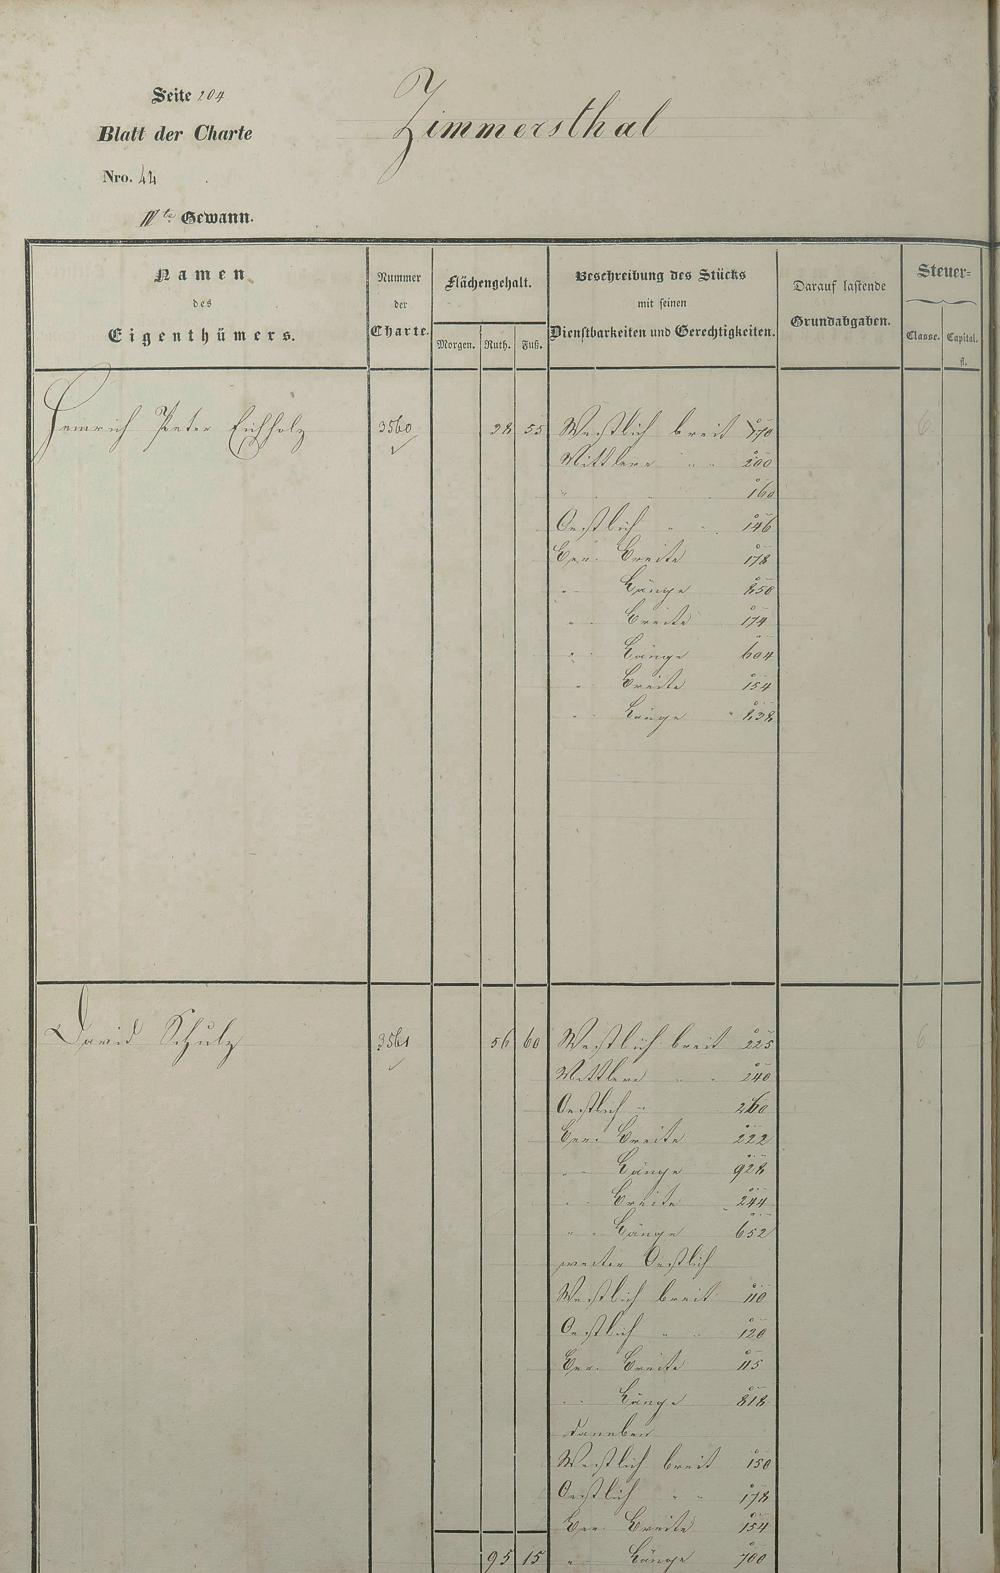 Seite 204
Zimmersthal
Blatt der Charte
Nro. 44
IVte Gewann.
Namen des Eigenthümers.
Nummer der Charte.
Flächengehalt.
Morgen. Ruth. Fuß.
Beschreibung des Stücks mit seinen Dienstbarkeiten und Gerechtigkeiten.
Darauf lastende Grundabgaben.
Steuer=
Classe. Capital. fl.
Heinrich Peter Eichholz 3560 38 55 Westlich breit 170 6
Mittlere " " 200
" 160
Oestlich " " 146
Ber. Breite 178
" Länge 850
" Breite 174
" Länge 604
" Breite 154
" Länge 838
David Schulz 3561 56 60 Westlich breit 225 6
Mittlere " " 240
Oestlich " 260
Ber. Breite 222
" Länge 928
" Breite 244
" " Länge 652
weiter Oestlich
Westlich breit 110
Oestlich " " 120
Ber. Breite 115
" Länge 818
daneben
Westlich breit 150
Oestlich " " 178
Ber. Breite 154
95 15 " Länge 700